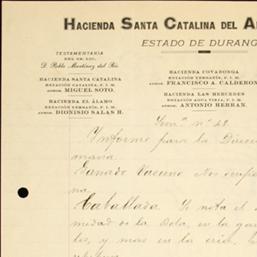 HACIENDA SANTA CATALINA DEL A
ESTADO DE DURANG
TESTAMENTARIA
DEL SR. LIC.
D. Pablo Martínez del Río.
HACIENDA SANTA CATALINA
ESTACIÓN CATALINA, F. I. M.
ADMOR. MIGUEL SOTO.
HACIENDA EL ÁLAMO
ESTACIÓN VERGARÍN, F. I. M.
ADMOR. DIONISIO SALAS H.
HACIENDA COVADONGA
ESTACIÓN VERGARÍN, F. I. M.
ADMOR. FRANCISCO A. CALDERON
HACIENDA LAS MERCEDES
ESTACIÓN AGUA VIEJA, F. I. M.
ADMOR. ANTONIO HERRAN.
nº 42
Informe para la Direcc
Ganado Vacuno Nos ocupa
na
Caballada. Se nota el
medad de la Bola, en la ga
les, y mas en la cría